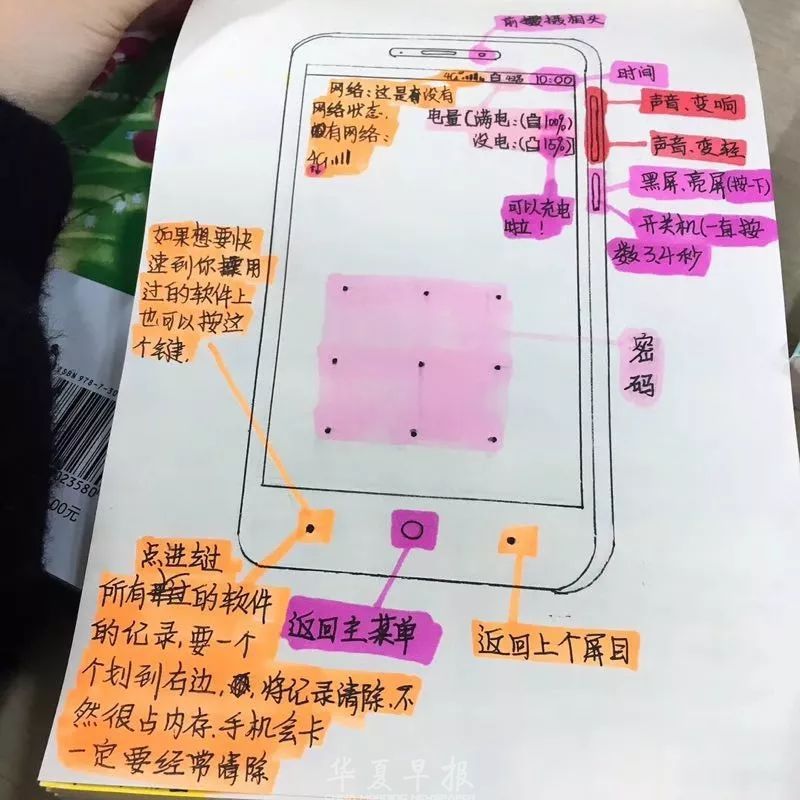 前置摄相头
4G 白 43% 10:00
时间
网络：这是有没有
网络状态.
有网络：
4G
电量(满电：(白100%)
没电：(白15%)
可以充电
啦！
声音、变响
声音、变轻
黑屏、亮屏(按一下)
开关机(一直按
数3.4秒
如果想要快
速到你使用
过的软件上
也可以按这
个键.
密
码
ISBN 978-7-30
023580
.00元
点进去过
所有的软件
的记录,要一个
个划到右边, 将记录清除,不
然很占内存.手机会卡
一定要经常清除
返回主菜单
返回上个屏目
华夏早报